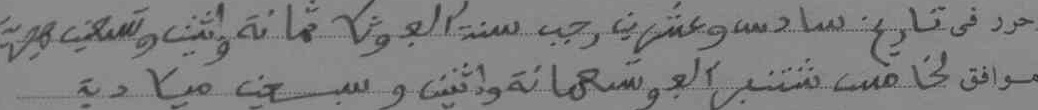 حرر فى تاريخ سادس وعشرين رجب سنة الف وثلاثمائة واثنين وتسعين هجرية
موافق لخامس شتنبر الف وتسعمائة واثنين وسبعين ميلادية